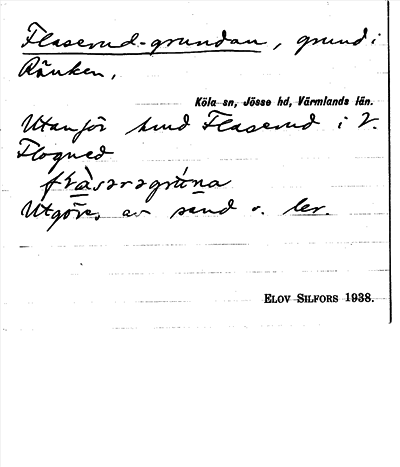 Flaserud-grundan, grund i
Ränken.
Köla sn, Jösse hd, Värmlands län.
Utanför Flaserud i V.
Flogned
Utgöres av sand o. ler.
ELOV SILFORS 1938.